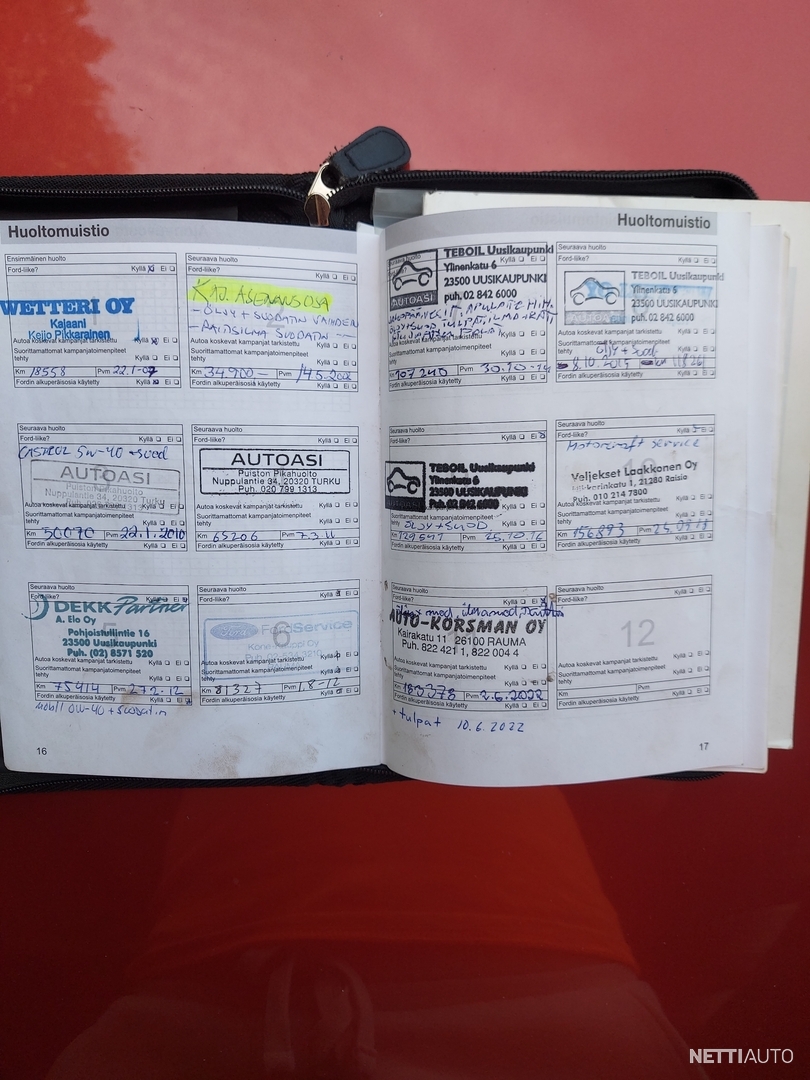 Huoltomuistio
Ensimmäinen huolto
Ford-liike?
Kyllä Ei
WETTERI OY
Kajaani
Keijo Pikkarainen
Autoa koskevat kampanjat tarkistettu Kyllä Ei
Suorittamattomat kampanjatoimenpiteet tehty Kyllä Ei
Km 18558 Pvm 22.1-07
Fordin alkuperäisosia käytetty Kyllä Ei
Seuraava huolto
Ford-liike?
Kyllä Ei
KAJ. ASENNUSOSA
- ÖLJY + SUODATIN VAIHDETTU
- RAITISILMA SUODATIN
Autoa koskevat kampanjat tarkistettu
Suorittamattomat kampanjatoimenpiteet tehty Kyllä Ei
Km 34900 - Pvm
Fordin alkuperäisosia käytetty Kyllä Ei
Seuraava huolto
Ford-liike?
Kyllä Ei
CASTROL 5W-40 + suod
AUTOASI
Puiston Pikahuolto
Nuppulantie 34, 20320 Turku
Autoa koskevat kampanjat tarkistettu
Suorittamattomat kampanjatoimenpiteet tehty Kyllä Ei
Km 50070 Pvm 22.1.2010
Fordin alkuperäisosia käytetty Kyllä Ei
Seuraava huolto
Ford-liike?
Kyllä Ei
AUTOASI
Puiston Pikahuolto
Nuppulantie 34, 20320 TURKU
Puh. 020 799 1313
Autoa koskevat kampanjat tarkistettu Kyllä Ei
Suorittamattomat kampanjatoimenpiteet tehty Kyllä Ei
Km 65206 Pvm 7.3.11
Fordin alkuperäisosia käytetty Kyllä Ei
Seuraava huolto
Ford-liike?
Kyllä Ei
DEKK Partner
A. Elo Oy
Pohjoistullintie 16
23500 Uusikaupunki
Puh. (02) 8571 520
Autoa koskevat kampanjat tarkistettu Kyllä Ei
Suorittamattomat kampanjatoimenpiteet tehty Kyllä Ei
Km 75414 Pvm 27.2.12
Fordin alkuperäisosia käytetty Kyllä Ei
mobil 0W-40 + suodatin
Seuraava huolto
Ford-liike?
Kyllä Ei
Ford FordService
6
Autoa koskevat kampanjat tarkistettu Kyllä Ei
Suorittamattomat kampanjatoimenpiteet tehty Kyllä Ei
Km 81327 Pvm 1.8-12
Fordin alkuperäisosia käytetty Kyllä Ei
16
Huoltomuistio
TEBOIL Uusikaupunki
Ylinenkatu 6
23500 UUSIKAUPUNKI
puh. 02 842 6000
AUTOASI
Suorittamattomat kampanjatoimenpiteet tehty Kyllä Ei
Km 107240 Pvm 30.10-14
Fordin alkuperäisosia käytetty Kyllä Ei
Seuraava huolto
Ford-liike?
Kyllä Ei
TEBOIL Uusikaupunki
Ylinenkatu 6
23500 UUSIKAUPUNKI
puh. 02 842 6000
Autoa koskevat kampanjat tarkistettu Kyllä Ei
Suorittamattomat kampanjatoimenpiteet tehty
öljy + suod
8.10.2015
Fordin alkuperäisosia käytetty Kyllä Ei
Seuraava huolto
Ford-liike?
Kyllä Ei
TEBOIL Uusikaupunki
Ylinenkatu 6
23500 UUSIKAUPUNKI
Puh. 02 842 6000
Autoa koskevat kampanjat tarkistettu Kyllä Ei
Suorittamattomat kampanjatoimenpiteet tehty Kyllä Ei
ÖLJY + SUOD
Km 129547 Pvm 25.10.16
Fordin alkuperäisosia käytetty Kyllä Ei
Seuraava huolto
Ford-liike?
Kyllä Ei
Motorcraft service
Veljekset Laakkonen Oy
21280 Raisio
Puh. 010 214 7800
Autoa koskevat kampanjat tarkistettu Kyllä Ei
Suorittamattomat kampanjatoimenpiteet tehty Kyllä Ei
Km 156893 Pvm 25.09.18
Fordin alkuperäisosia käytetty Kyllä Ei
Seuraava huolto
Ford-liike?
Kyllä Ei
AUTO-KORSMAN OY
Kairakatu 11 26100 RAUMA
Puh. 822 421 1, 822 004 4
Autoa koskevat kampanjat tarkistettu Kyllä Ei
Suorittamattomat kampanjatoimenpiteet tehty Kyllä Ei
Km 183378 Pvm 2.6.2022
Fordin alkuperäisosia käytetty Kyllä Ei
+ tulpat 10.6.2022
Seuraava huolto
Ford-liike?
Kyllä Ei
12
Autoa koskevat kampanjat tarkistettu Kyllä Ei
Suorittamattomat kampanjatoimenpiteet tehty Kyllä Ei
Km Pvm
Fordin alkuperäisosia käytetty Kyllä Ei
17
NETTIAUTO